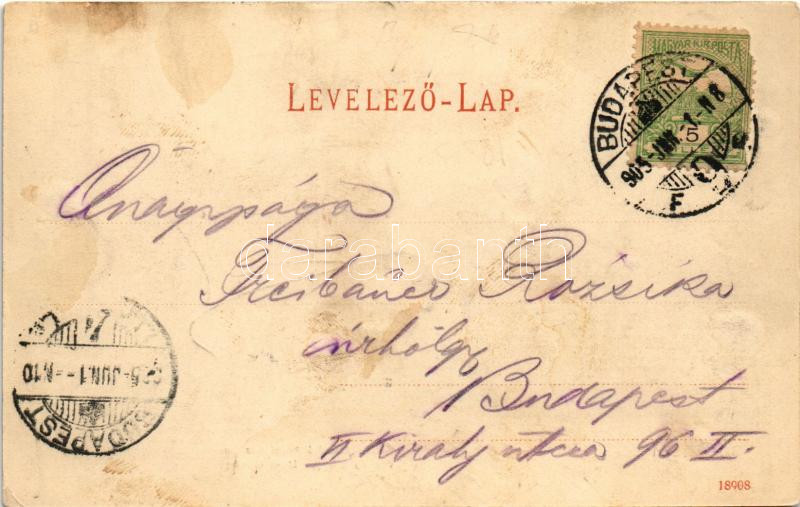 LEVELEZŐ-LAP.
MAGYAR KIR. POSTA
5
BUDAPEST
905-JUN.
F
Őnagysága
Freibauer Rózsika
úrhölgy
Budapest
VI Király utca 96 II.
BUDAPEST
905-JUN.1-
darabanth
18908